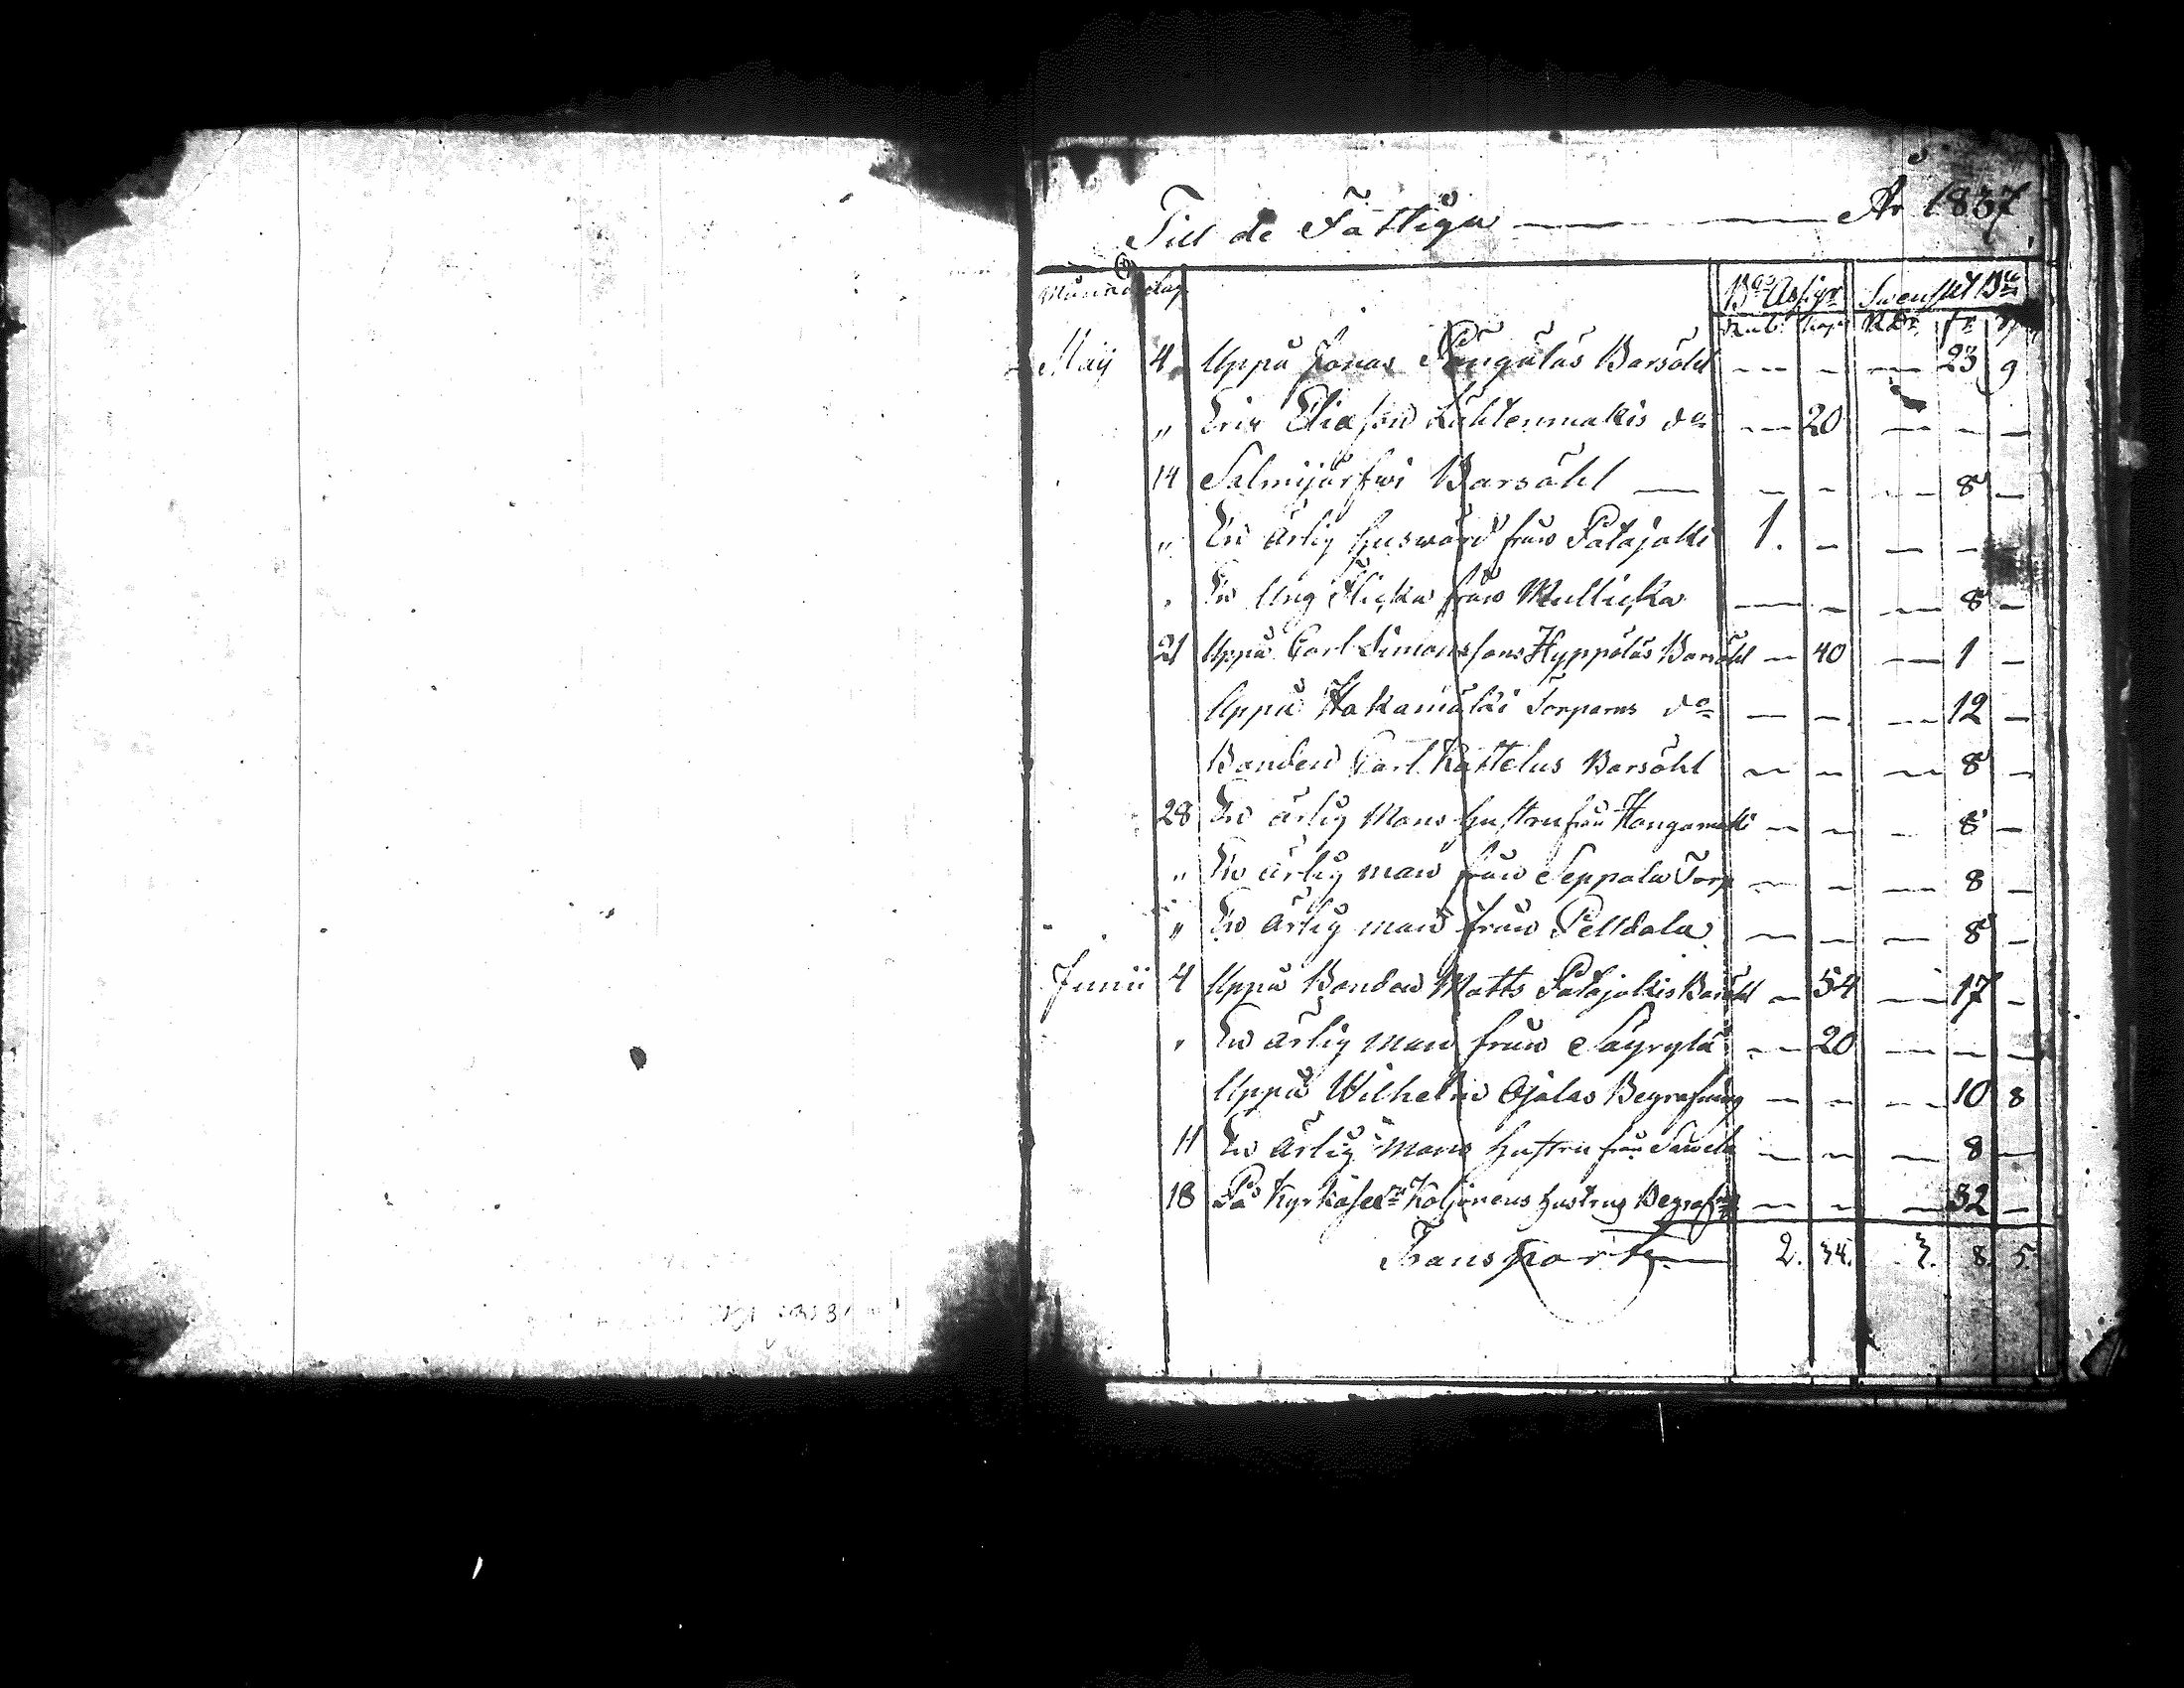 Till de Fattiga — — År 1837
Månad dag Bco Assigr Swenskt Bco
Rub: kop: RDr. sk. r.
Maij 4. Uppå Jonas Pengälas Barsöhl — — — 23 9
" Eric Eliasson Lähtenmäkis do — 20 — — —
14 Salmijärfwi Barsöhl — — — — 8 —
" En ärlig huswärd från Patajoki 1. — — — —
" En Ung Flicka från Mullicka — — — 8 —
21 Uppå Carl Simonssons Hyppöläs Barsöhl — 40 — 1 —
Uppå Hakamäki Torpares do — — — 12 —
Bonden Carl Kattelus Barsöhl — — — 8 —
28 En ärlig Mans hustru från Kangamäki — — — 8 —
" En ärlig man från Seppälä Torp — — — 8 —
" En ärlig man från Pelldola — — — 8 —
Junii 4 Uppå Bonden Matts Patajokis Barsöhl — 54 — 17 —
" En ärlig man från Säyrylä — 20 — — —
Uppå Wilhelm Ojalas Begrafning — — — 10 8
11 En ärlig Mans hustru från Sawela — — — 8 —
18 På Kyrkoherden Koljonens hustrus Begrafn: — — — 32 —
Transport — 2. 34. 3. 8. 5.